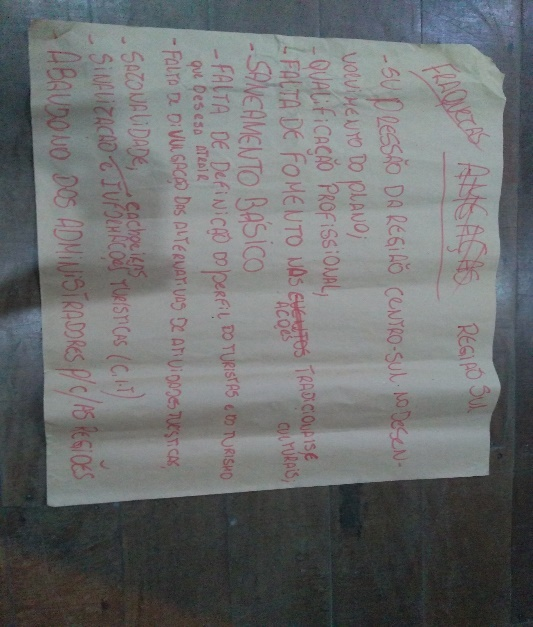 FRAQUEZAS AMEAÇAS REGIÃO SUL
- SUPRESSÃO DA REGIÃO CENTRO-SUL NO DESEN-
VOLVIMENTO DO PLANO;
- QUALIFICAÇÃO PROFISSIONAL;
- FALTA DE FOMENTO NAS EVENTOS TRADICIONAIS E
AÇÕES CULTURAIS;
- SANEAMENTO BÁSICO
- FALTA DE DEFINIÇÃO DO PERFIL DO TURISTAS E DO TURISMO
QUE DESEJA ATRAIR
- FALTA DE DIVULGAÇÃO DAS ALTERNATIVAS DE ATIVIDADES TURÍSTICAS,
- SAZONALIDADE, cachoeiras
- SINALIZAÇÃO E INFORMAÇÕES TURÍSTICAS (C.I.T)
ABANDONO DOS ADMINISTRADORES P/C/AS REGIÕES